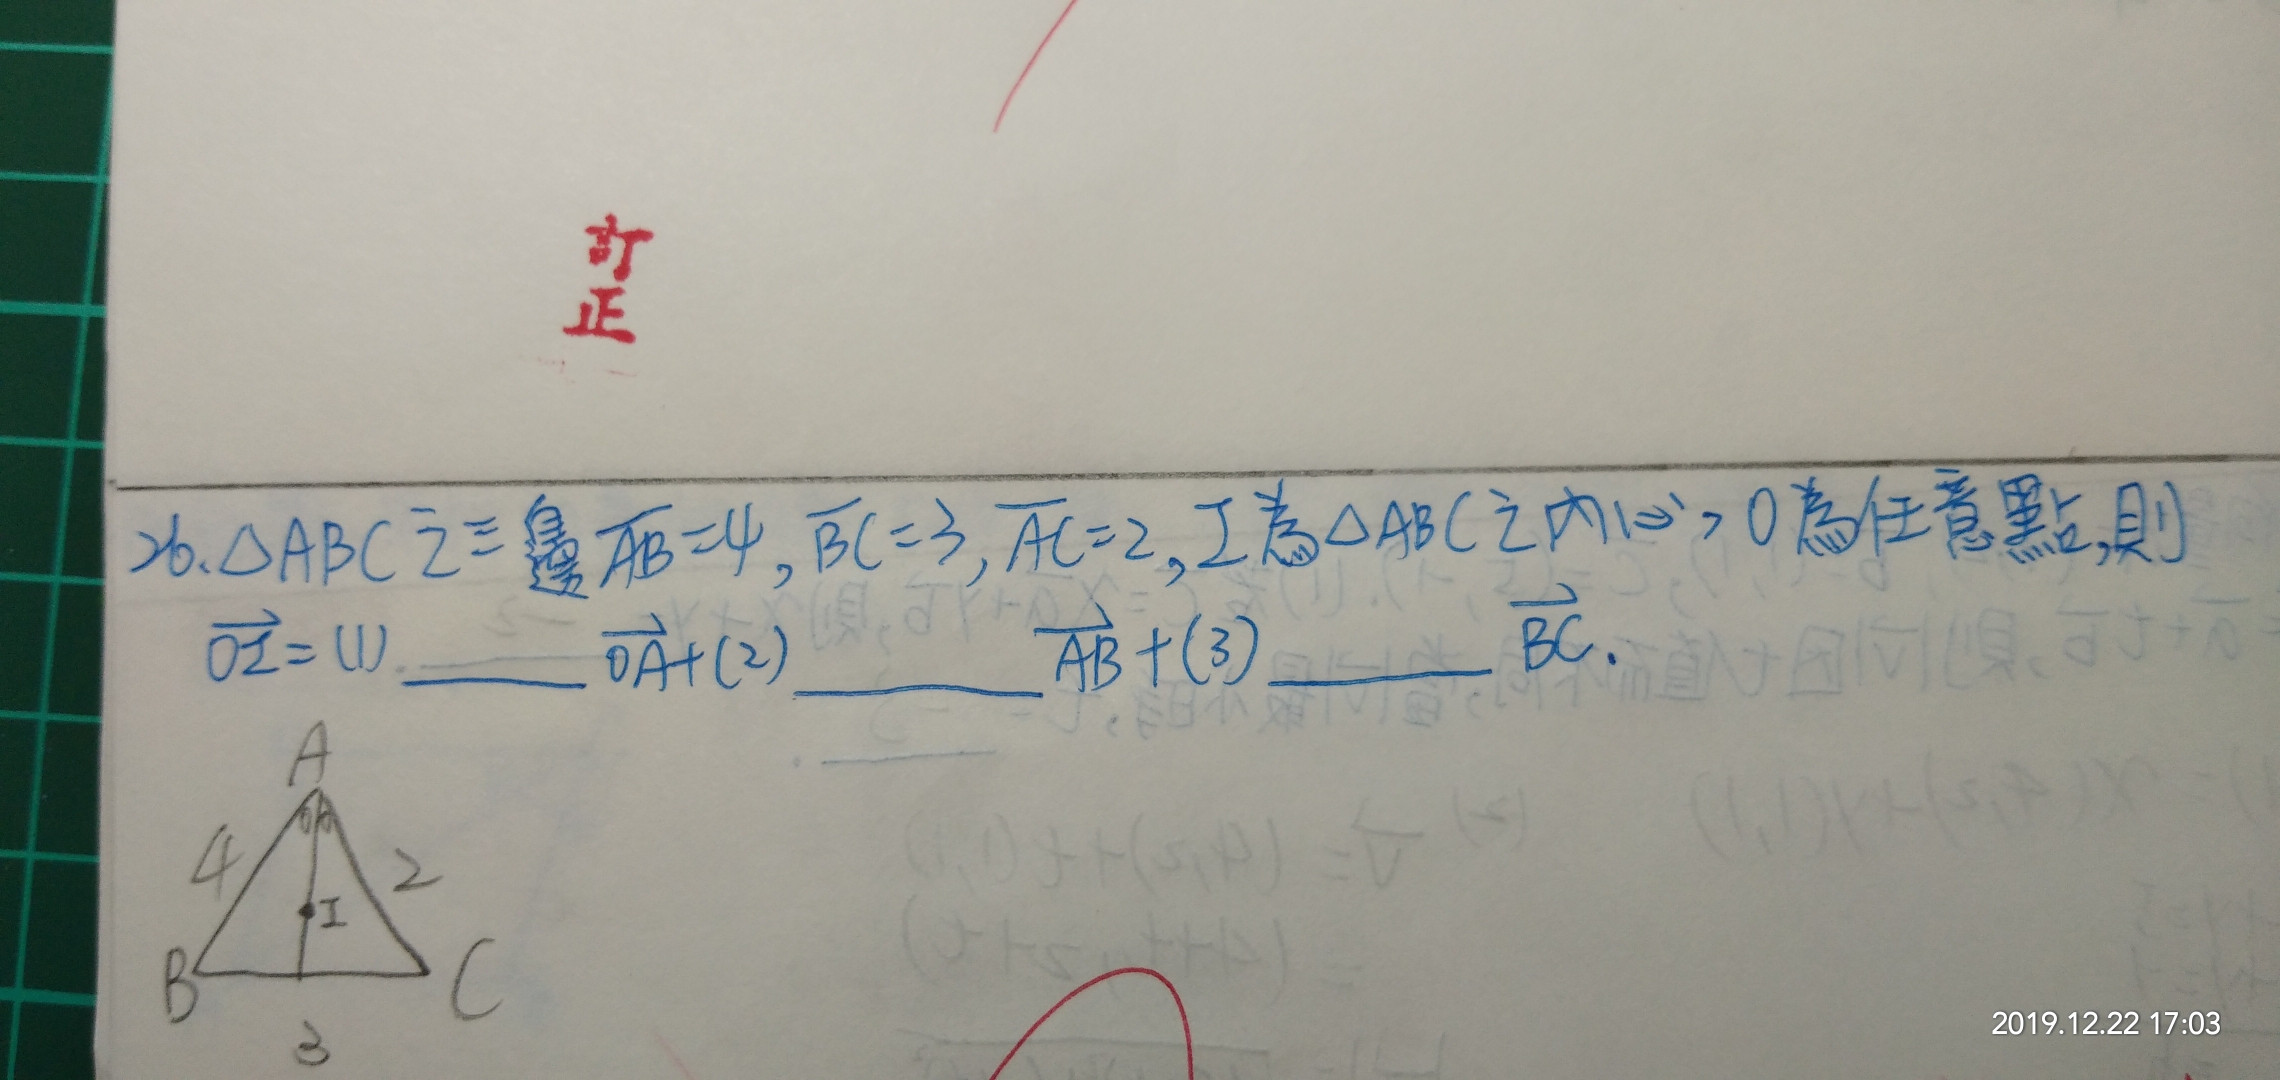 訂
正
26. △ABC之三邊 AB=4, BC=3, AC=2, I為△ABC之內心, O為任意點, 則
OI = (1) ____ OA + (2) ____ AB + (3) ____ BC.
A
4
2
I
B
C
3
2019.12.22 17:03